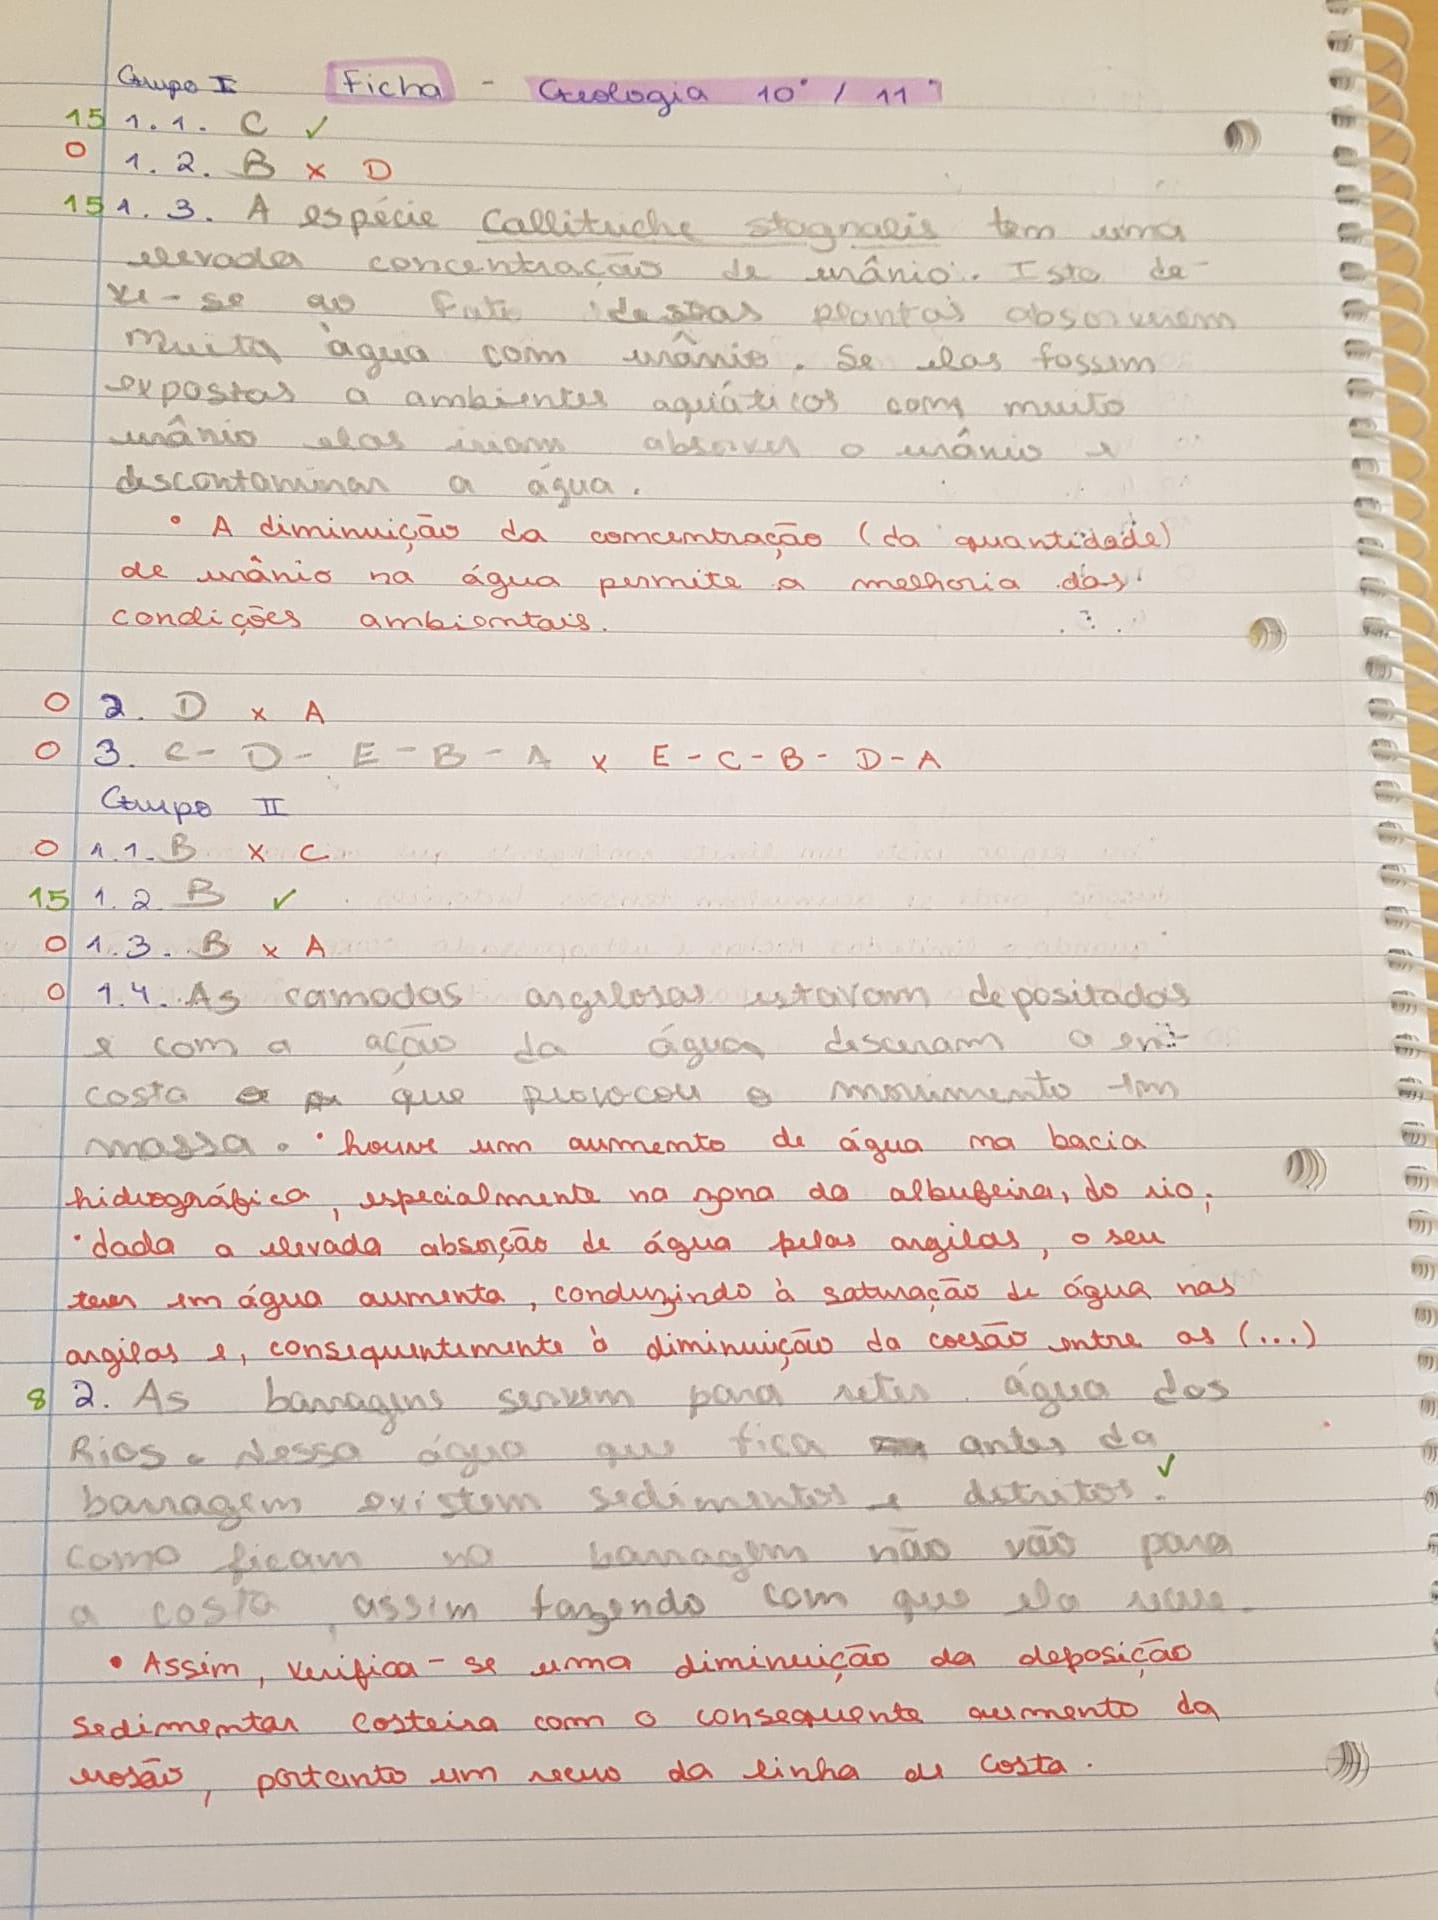 Grupo I Ficha - Geologia 10° / 11°
15 1.1. C ✓
0 1.2. B x D
15 1.3. A espécie Callitriche stagnalis tem uma
elevada concentração de urânio. Isto de-
ve-se ao facto destas plantas absorverem
muita água com urânio. Se elas fossem
expostas a ambientes aquáticos com muito
urânio elas iriam absorver o urânio e
descontaminar a água.
• A diminuição da concentração (da quantidade)
de urânio na água permite a melhoria das
condições ambientais.
0 2. D x A
0 3. C - D - E - B - A x E - C - B - D - A
Grupo II
0 1.1. B x C
15 1.2 B ✓
0 1.3. B x A
0 1.4. As camadas argilosas estavam depositadas
e com a ação da água desceram a en-
costa que provocou o movimento em
massa. • houve um aumento de água na bacia
hidrográfica, especialmente na zona da albufeira, do rio;
• dada a elevada absorção de água pelas argilas, o seu
teor em água aumenta, conduzindo à saturação de água nas
argilas e, consequentemente à diminuição da coesão entre as (...)
8 2. As barragens servem para reter água dos
Rios. Nessa água que fica antes da
barragem existem sedimentos e detritos. ✓
Como ficam na barragem não vão para
a costa, assim fazendo com que ela recue.
• Assim, verifica-se uma diminuição da deposição
sedimentar costeira com o consequente aumento da
erosão, portanto um recuo da linha de costa.